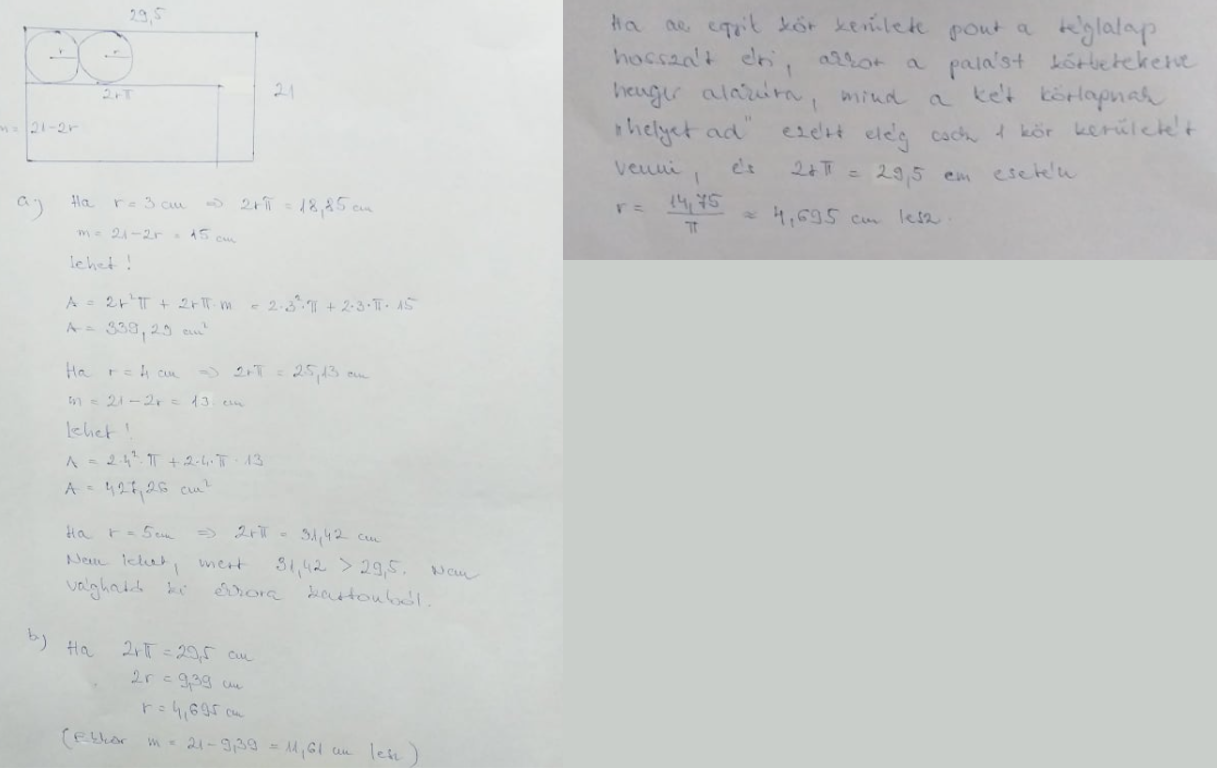 29,5
r r
2rπ
21
m = 21-2r
a) Ha r = 3 cm ⇒ 2rπ = 18,85 cm
m = 21-2r = 15 cm
lehet!
A = 2r²π + 2rπ·m = 2·3²·π + 2·3·π·15
A = 339,29 cm²
Ha r = 4 cm ⇒ 2rπ = 25,13 cm
m = 21-2r = 13 cm
Lehet!
A = 2·4²·π + 2·4·π·13
A = 427,26 cm²
Ha r = 5 cm ⇒ 2rπ = 31,42 cm
Nem lehet, mert 31,42 > 29,5. Nem
vágható ki ekkora kartonból.
b) Ha 2rπ = 29,5 cm
2r = 9,39 cm
r = 4,695 cm
(Ekkor m = 21-9,39 = 11,61 cm lesz)
Ha az egyik kör kerülete pont a téglalap
hosszát éri, akkor a palást körbetekerve
henger alakúra, mind a két körlapnak
"helyet ad" ezért elég csak 1 kör kerületét
venni, és 2rπ = 29,5 cm esetén
r = 14,75/π ≈ 4,695 cm lesz.